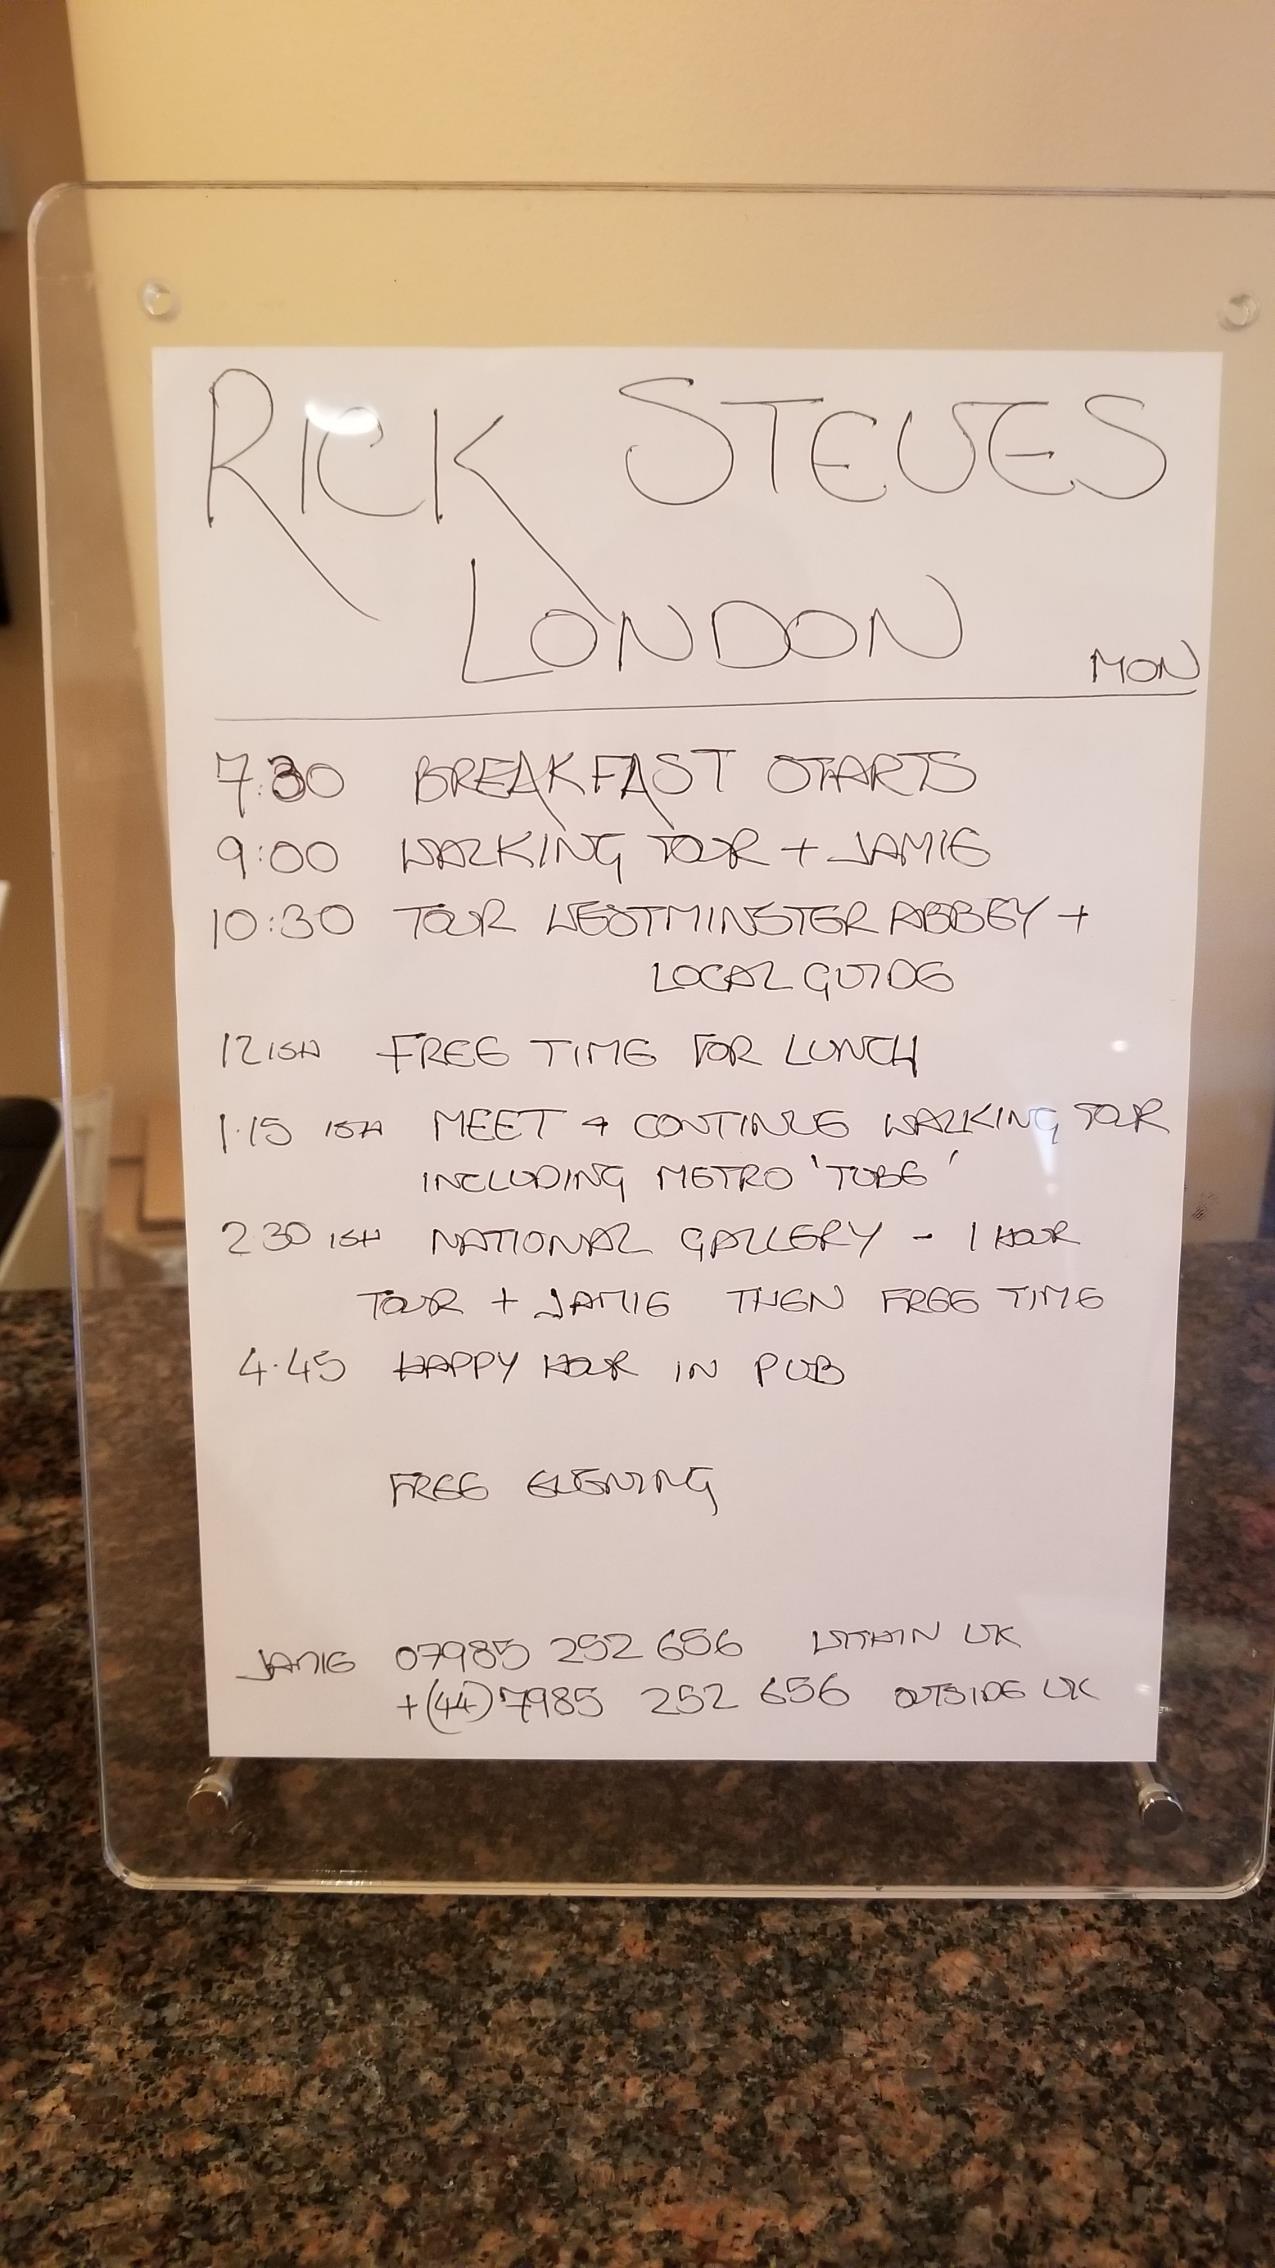 RICK STEVES
LONDON
MON
7:30 BREAKFAST STARTS
9:00 WALKING TOUR + JAMIE
10:30 TOUR WESTMINSTER ABBEY +
LOCAL GUIDE
12 ISH FREE TIME FOR LUNCH
1.15 ISH MEET + CONTINUE WALKING TOUR
INCLUDING METRO 'TUBE'
2 30 ISH NATIONAL GALLERY - 1 HOUR
TOUR + JAMIE THEN FREE TIME
4.45 HAPPY HOUR IN PUB
FREE EVENING
JAMIE 07985 252 656 WITHIN UK
+(44) 7985 252 656 OUTSIDE UK